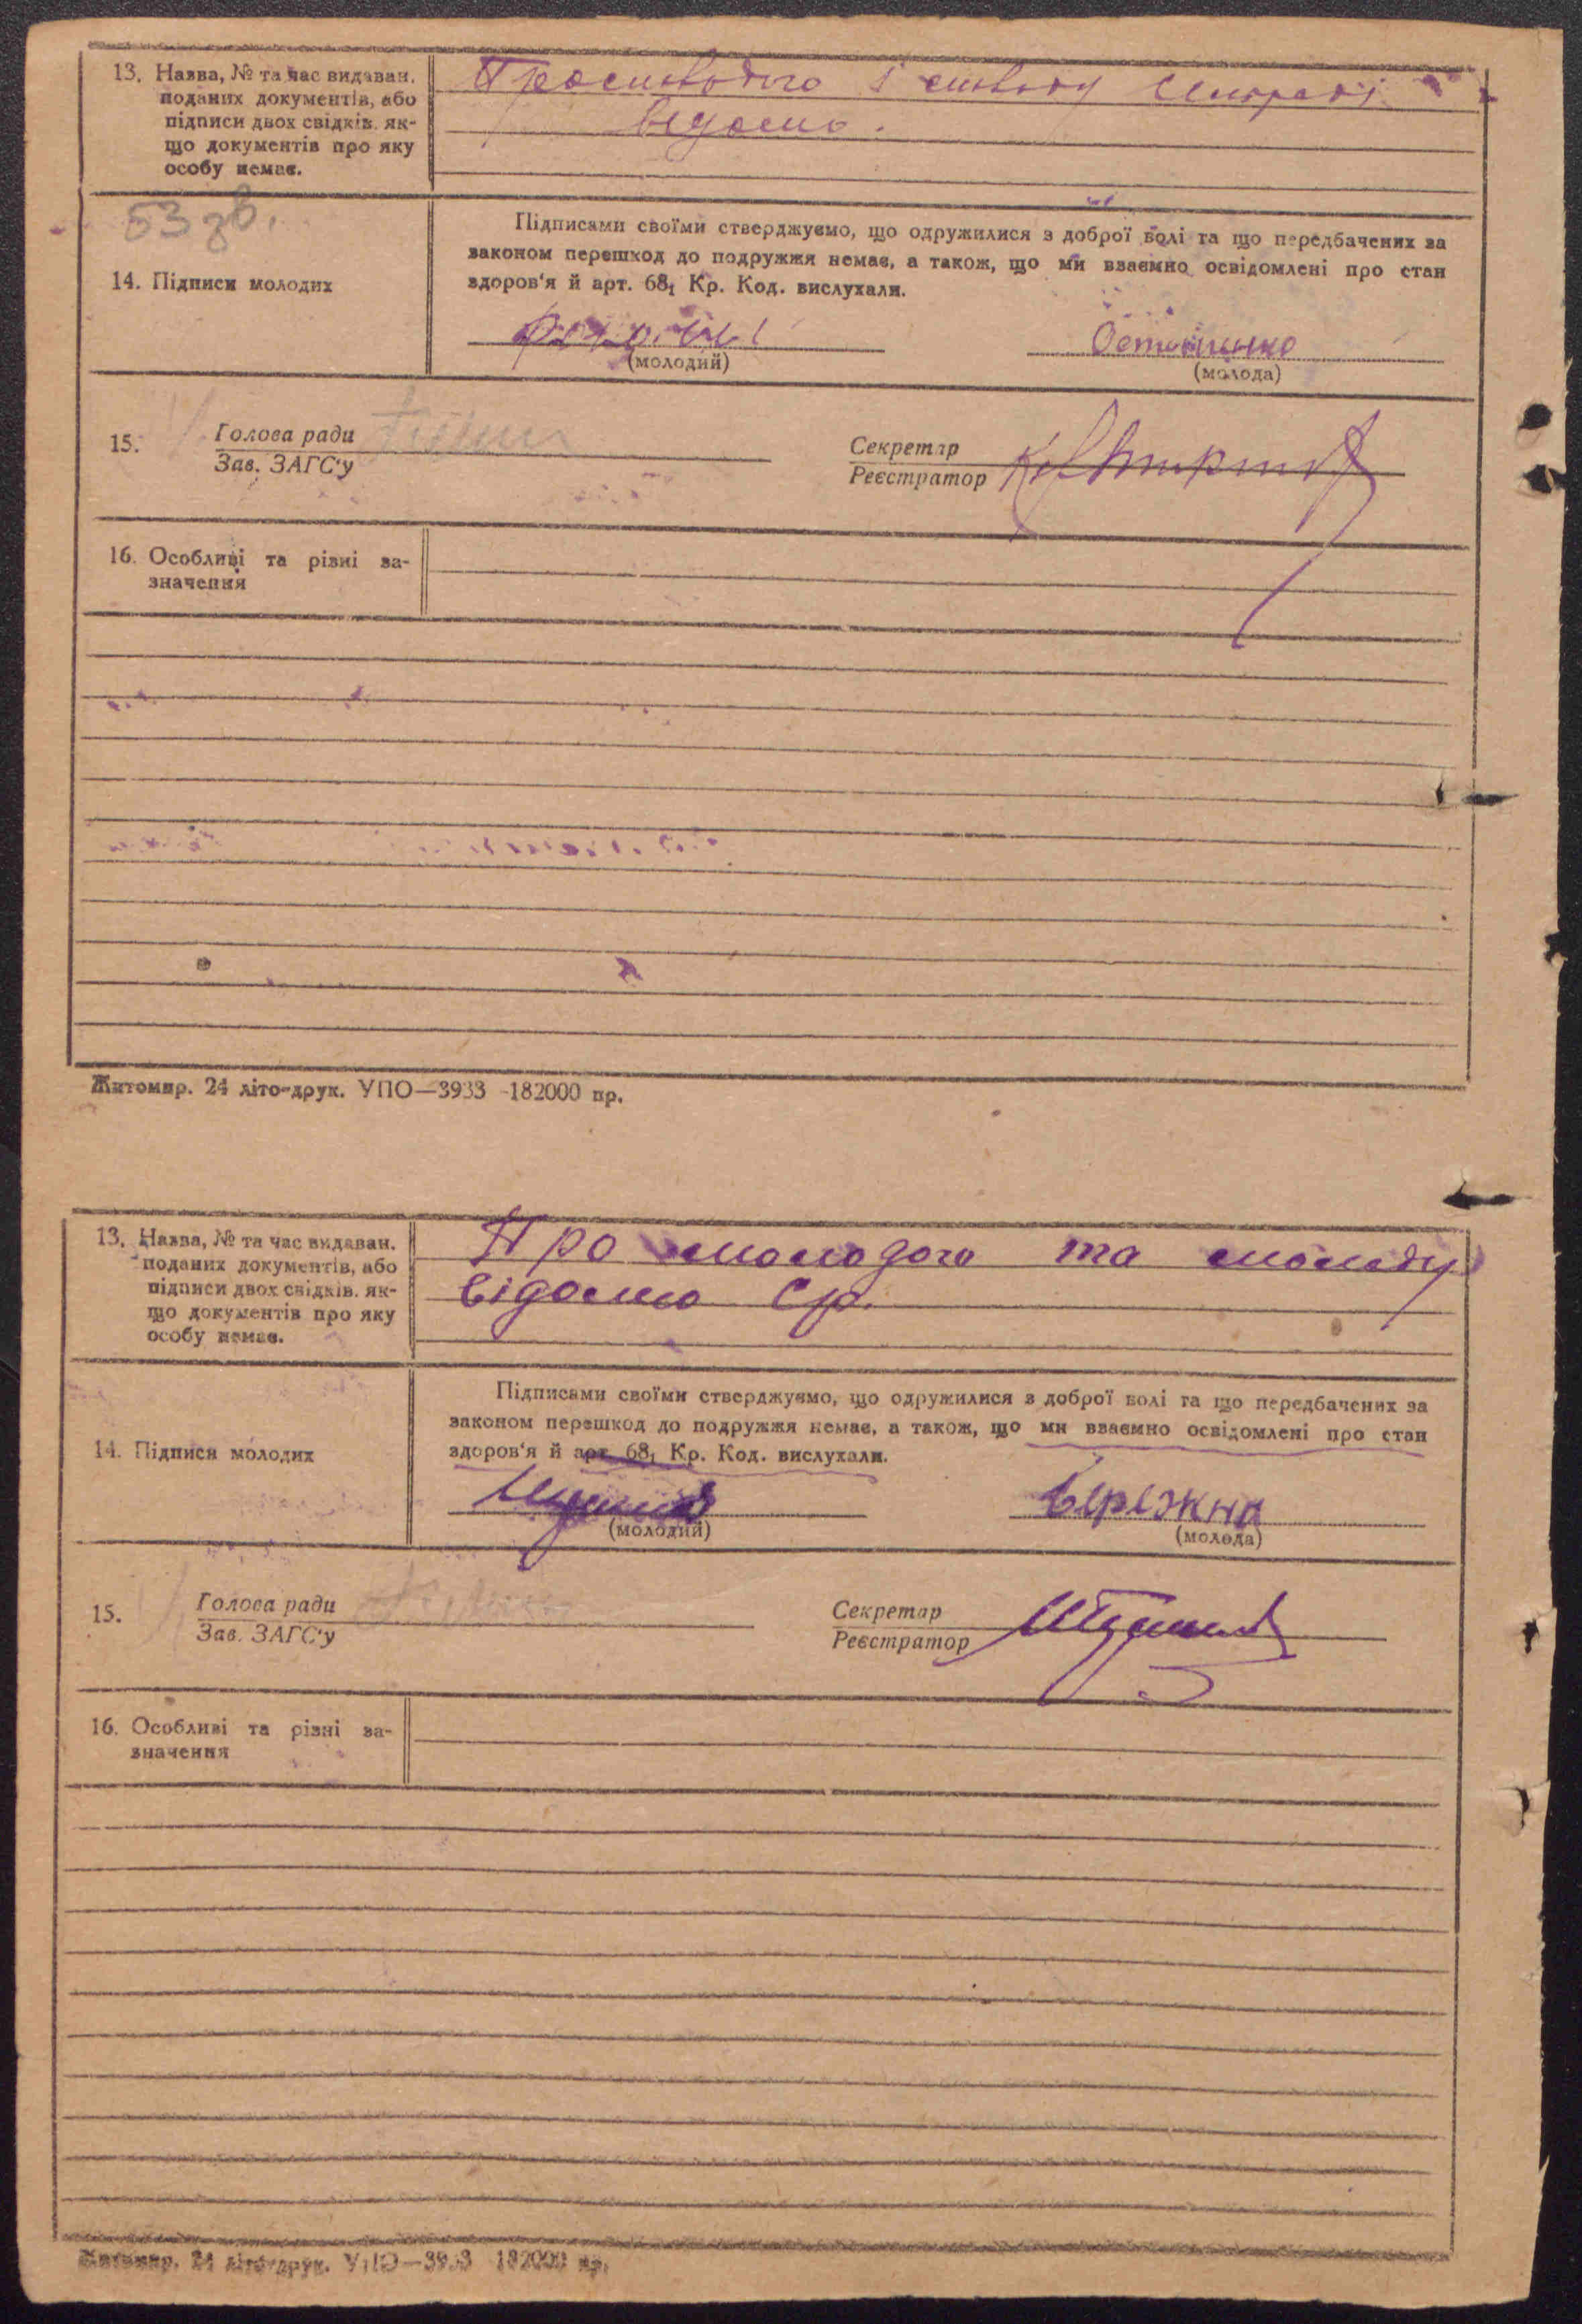 13. Назва, № та час видаван.
поданих документів, або
підписи двох свідків. як-
що документів про яку
особу немає.
53 зв.
14. Підписи молодих
Підписами своїми стверджуємо, що одружилися з доброї волі та що передбачених за
законом перешкод до подружжя немає, а також, що ми взаємно освідомлені про стан
здоров'я й арт. 68₁ Кр. Код. вислухали.
(молодий)
(молода)
15.
Голова ради
Зав. ЗАГС'у
Секретар
Реєстратор
16. Особливі та різні за-
значення
Житомир. 24 літо-друк. УПО—3933 -182000 пр.
13. Назва, № та час видаван.
поданих документів, або
підписи двох свідків. як-
що документів про яку
особу немає.
Про молодого та молоду
відомо Ср.
14. Підписи молодих
Підписами своїми стверджуємо, що одружилися з доброї волі та що передбачених за
законом перешкод до подружжя немає, а також, що ми взаємно освідомлені про стан
здоров'я й арт. 68₁ Кр. Код. вислухали.
Бережна
(молодий)
(молода)
15.
Голова ради
Зав. ЗАГС'у
Секретар
Реєстратор
16. Особливі та різні за-
значення
Житомир. 24 літо-друк. УПО—3933 182000 пр.